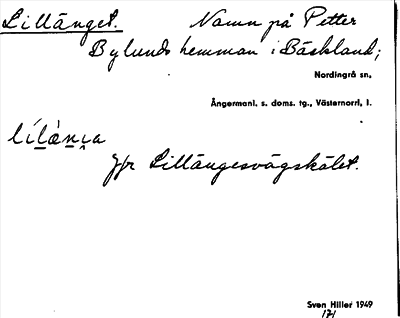 Lillänget. Namn på Petter
Bylunds hemman i Bäckland;
Nordingrå sn.
Ångermanl. s. doms. tg., Västernorrl. l.
Jfr Lillängesvägskälet.
Sven Hiller 1949
171